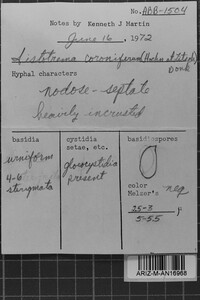 No. ABB-1504
Notes by Kenneth J Martin
June 16, 1972
Listotrema coroniferum (Hohn et Litsch)
Donk
Hyphal characters
nodose-septate
heavily incrusted
basidia
urniform
4-6
sterigmata
cystidia
setae, etc.
gloeocystidia
present
basidiospores
color
Melzer's neg
25-3
5-5.5
ARIZ-M-AN16968